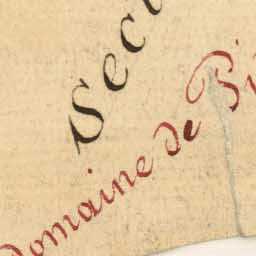 Sect
Domaine de Pi